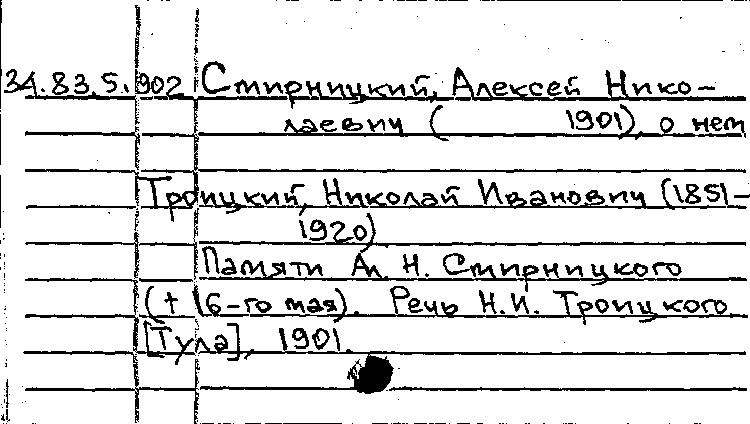 34.83.5.902 Смирницкий, Алексей Нико-
лаевич ( 1901), о нем
Троицкий, Николай Иванович (1851-
1920)
Памяти Ал. Н. Смирницкого
(+ 16-го мая). Речь Н.И. Троицкого
[Тула], 1901.